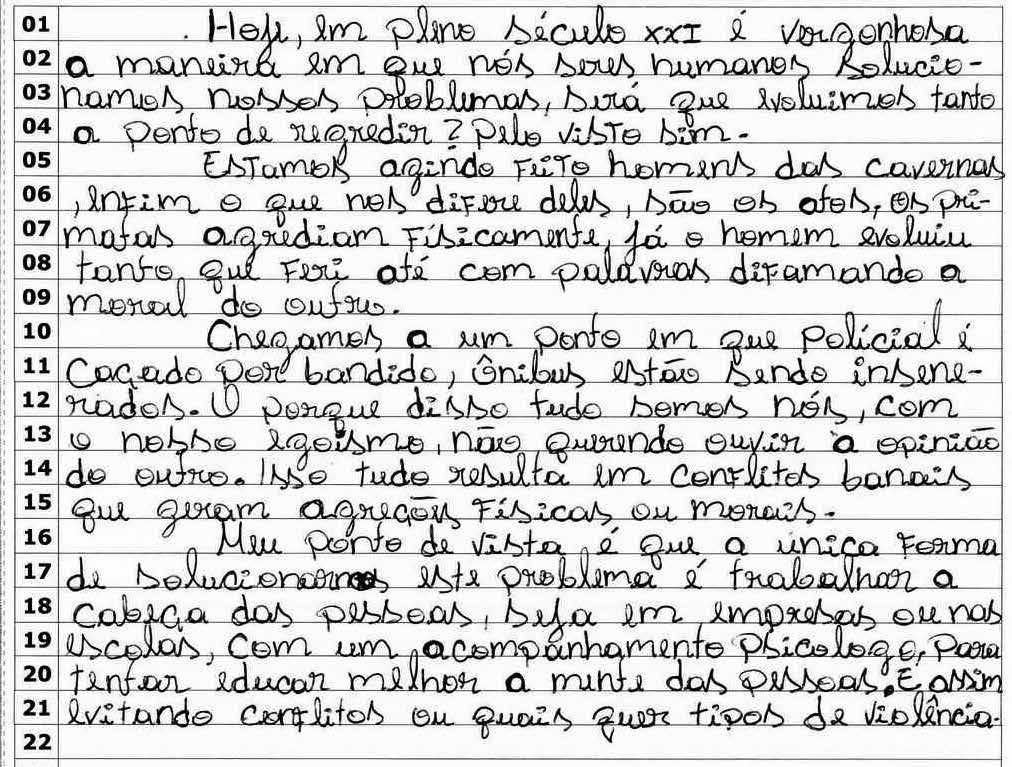 01 Hoje, em pleno século XXI é vergonhosa
02 a maneira em que nós seres humanos solucio-
03 namos nossos problemas, será que evoluimos tanto
04 a ponto de regredir? Pelo visto sim.
05 Estamos agindo feito homens das cavernas
06 , enfim o que nos difere deles, são os atos, os pri-
07 matas agrediam físicamente, já o homem evoluiu
08 tanto que feri até com palavras difamando a
09 moral do outro.
10 Chegamos a um ponto em que polícial é
11 caçado por bandido, ônibus estão sendo insene-
12 riados. O porque disso tudo somos nós, com
13 o nosso egoísmo, não querendo ouvir a opinião
14 do outro. Isso tudo resulta em conflitos banais
15 que geram agreções físicas ou morais.
16 Meu ponto de vista, é que a única forma
17 de solucionarmos este problema é trabalhar a
18 cabeça das pessoas, seja em empresas ou nas
19 escolas, com um acompanhamento psicologo, para
20 tentar educar melhor a mente das pessoas. E assim
21 evitando conflitos ou quais quer tipos de violência.
22